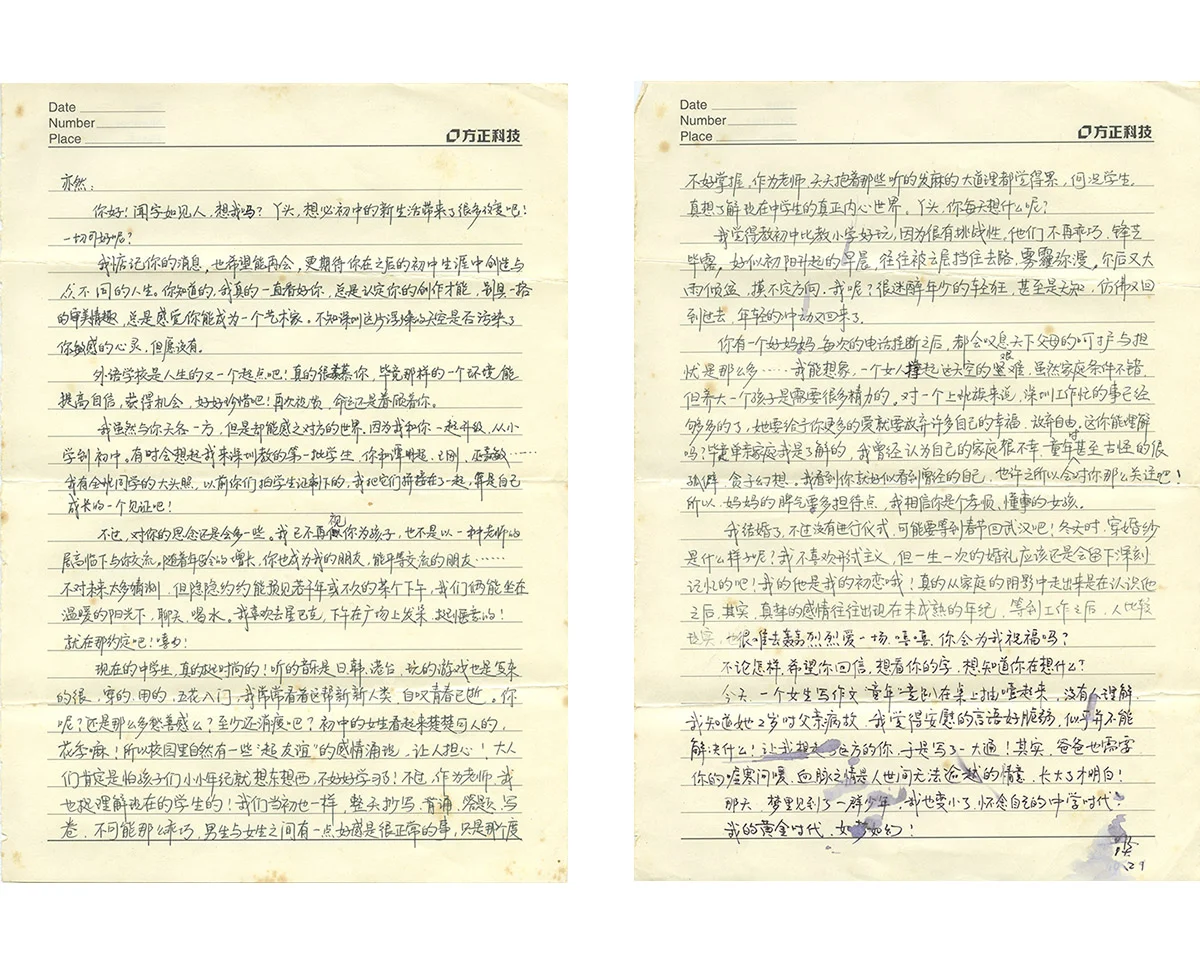 Date
Number
Place
方正科技
亦然：
你好！闻字如见人，想我吗？丫头，想必初中的新生活带来了很多改变吧！
一切可好呢？
我惦记你的消息，也希望能再会，更期待你在之后的初中生涯中创造与
众不同的人生。你知道的，我真的一直看好你，总是认定你的创作才能，别具一格
的审美情趣，总是感觉你能成为一个艺术家。不知深圳这片浮躁的天空是否沾染了
你敏感的心灵，但愿没有。
外语学校是人生的又一个起点吧！真的很羡慕你，毕竟那样的一个环境能
提高自信，获得机会，好好珍惜吧！再次祝贺，命运还是眷顾着你。
我虽然与你天各一方，但是却能感之对方的世界。因为我和你一起升级，从小
学到初中。有时会想起我来深圳教的第一批学生，你和谭明超、王刚、
我有全班同学的大头照，以前你们拍学生证剩下的，我把它们拼接在了一起，算是自己
成长的一个见证吧！
不过，对你的思念还是会多一些。我已不再视你为孩子，也不是以一种老师的
居高临下与你交流，随着年龄的增长，你也成为我的朋友，能平等交流的朋友……
不对未来太多猜测，但隐隐约约能预见若干年或不久的某个下午，我们俩能坐在
温暖的阳光下，聊天、喝水。我喜欢去星巴克，下午在广场上发呆，挺惬意的！
就在那约定吧！嘻嘻！
现在的中学生，真的挺时尚的！听的音乐是日韩、港台，玩的游戏也是多来
的很，穿的、用的，五花八门，我常常看着这帮新新人类，自叹青春已逝。你
呢？还是那么多愁善感么？至少还消瘦吧？初中的女生看起来楚楚可人的，
花季嘛！所以校园里自然有一些“超友谊”的感情涌现，让人担心！大人
们肯定是怕孩子们小小年纪就想东想西，不好好学习了！不过，作为老师，我
也挺理解现在的学生的！我们当初也一样，整天抄写、背诵、答题、写
卷，不可能那么乖巧，男生与女生之间有一点好感是很正常的事，只是那个度
Date
Number
Place
方正科技
不好掌握，作为老师，天天抱着那些听的发麻的大道理都觉得累，何况学生。
真想了解现在中学生的真正内心世界。丫头，你每天想什么呢？
我觉得教初中比教小学好玩，因为很有挑战性，他们不再乖巧，锋芒
毕露，好似初阳升起的早晨，往往被云层挡住去路，雾霾弥漫。尔后又大
雨倾盆，摸不定方向。我呢？很迷醉年少的轻狂，甚至是无知，仿佛又回
到过去，年轻的冲动又回来了。
你有一个好妈妈，每次的电话挂断之后，都会叹息天下父母的呵护与担
忧是那么多……我能想象，一个女人撑起这天空的艰难，虽然家庭条件不错，
但养大一个孩子是需要很多精力的。对一个上班族来说，深圳工作忙的事已经
够多的了，她要给予你更多的爱就要放弃许多自己的幸福，放弃自由，这你能理解
吗？毕竟单亲家庭我是了解的，我曾经认为自己的家庭很不幸，童年时甚至古怪的很
孤僻，贪于幻想。我看到你就好似看到曾经的自己，也许之所以会对你那么关注吧！
所以，妈妈的脾气要多担待点，我相信你是个孝顺、懂事的女孩。
我结婚了，不过没有进行仪式，可能要等到春节回武汉吧！冬天时，穿婚纱
是什么样子呢？我不喜欢形式主义，但一生一次的婚礼应该还是会留下深刻
记忆的吧！我的他是我的初恋哦！真的从家庭的阴影中走出来是在认识他
之后，其实，真挚的感情往往出现在未成熟的年纪，等到工作之后，人比较
现实，也很难去轰轰烈烈爱一场。嘻嘻，你会为我祝福吗？
不论怎样，希望你回信，想看你的字，想知道你在想什么？
今天，一个女生写作文“童年”竟趴在桌上抽噎起来，没有人理解，
我知道她2岁时父亲病故，我觉得安慰的言语好脆弱，似乎并不能
解决什么！让我想起远方的你，于是写了一大通！其实，爸爸也需要
你的嘘寒问暖，血脉之情是人世间无法逾越的情意，长大了才明白！
那天，梦里见到了一群少年，我也变小了，怀念自己的中学时代！
我的黄金时代，如梦如幻！
10.29